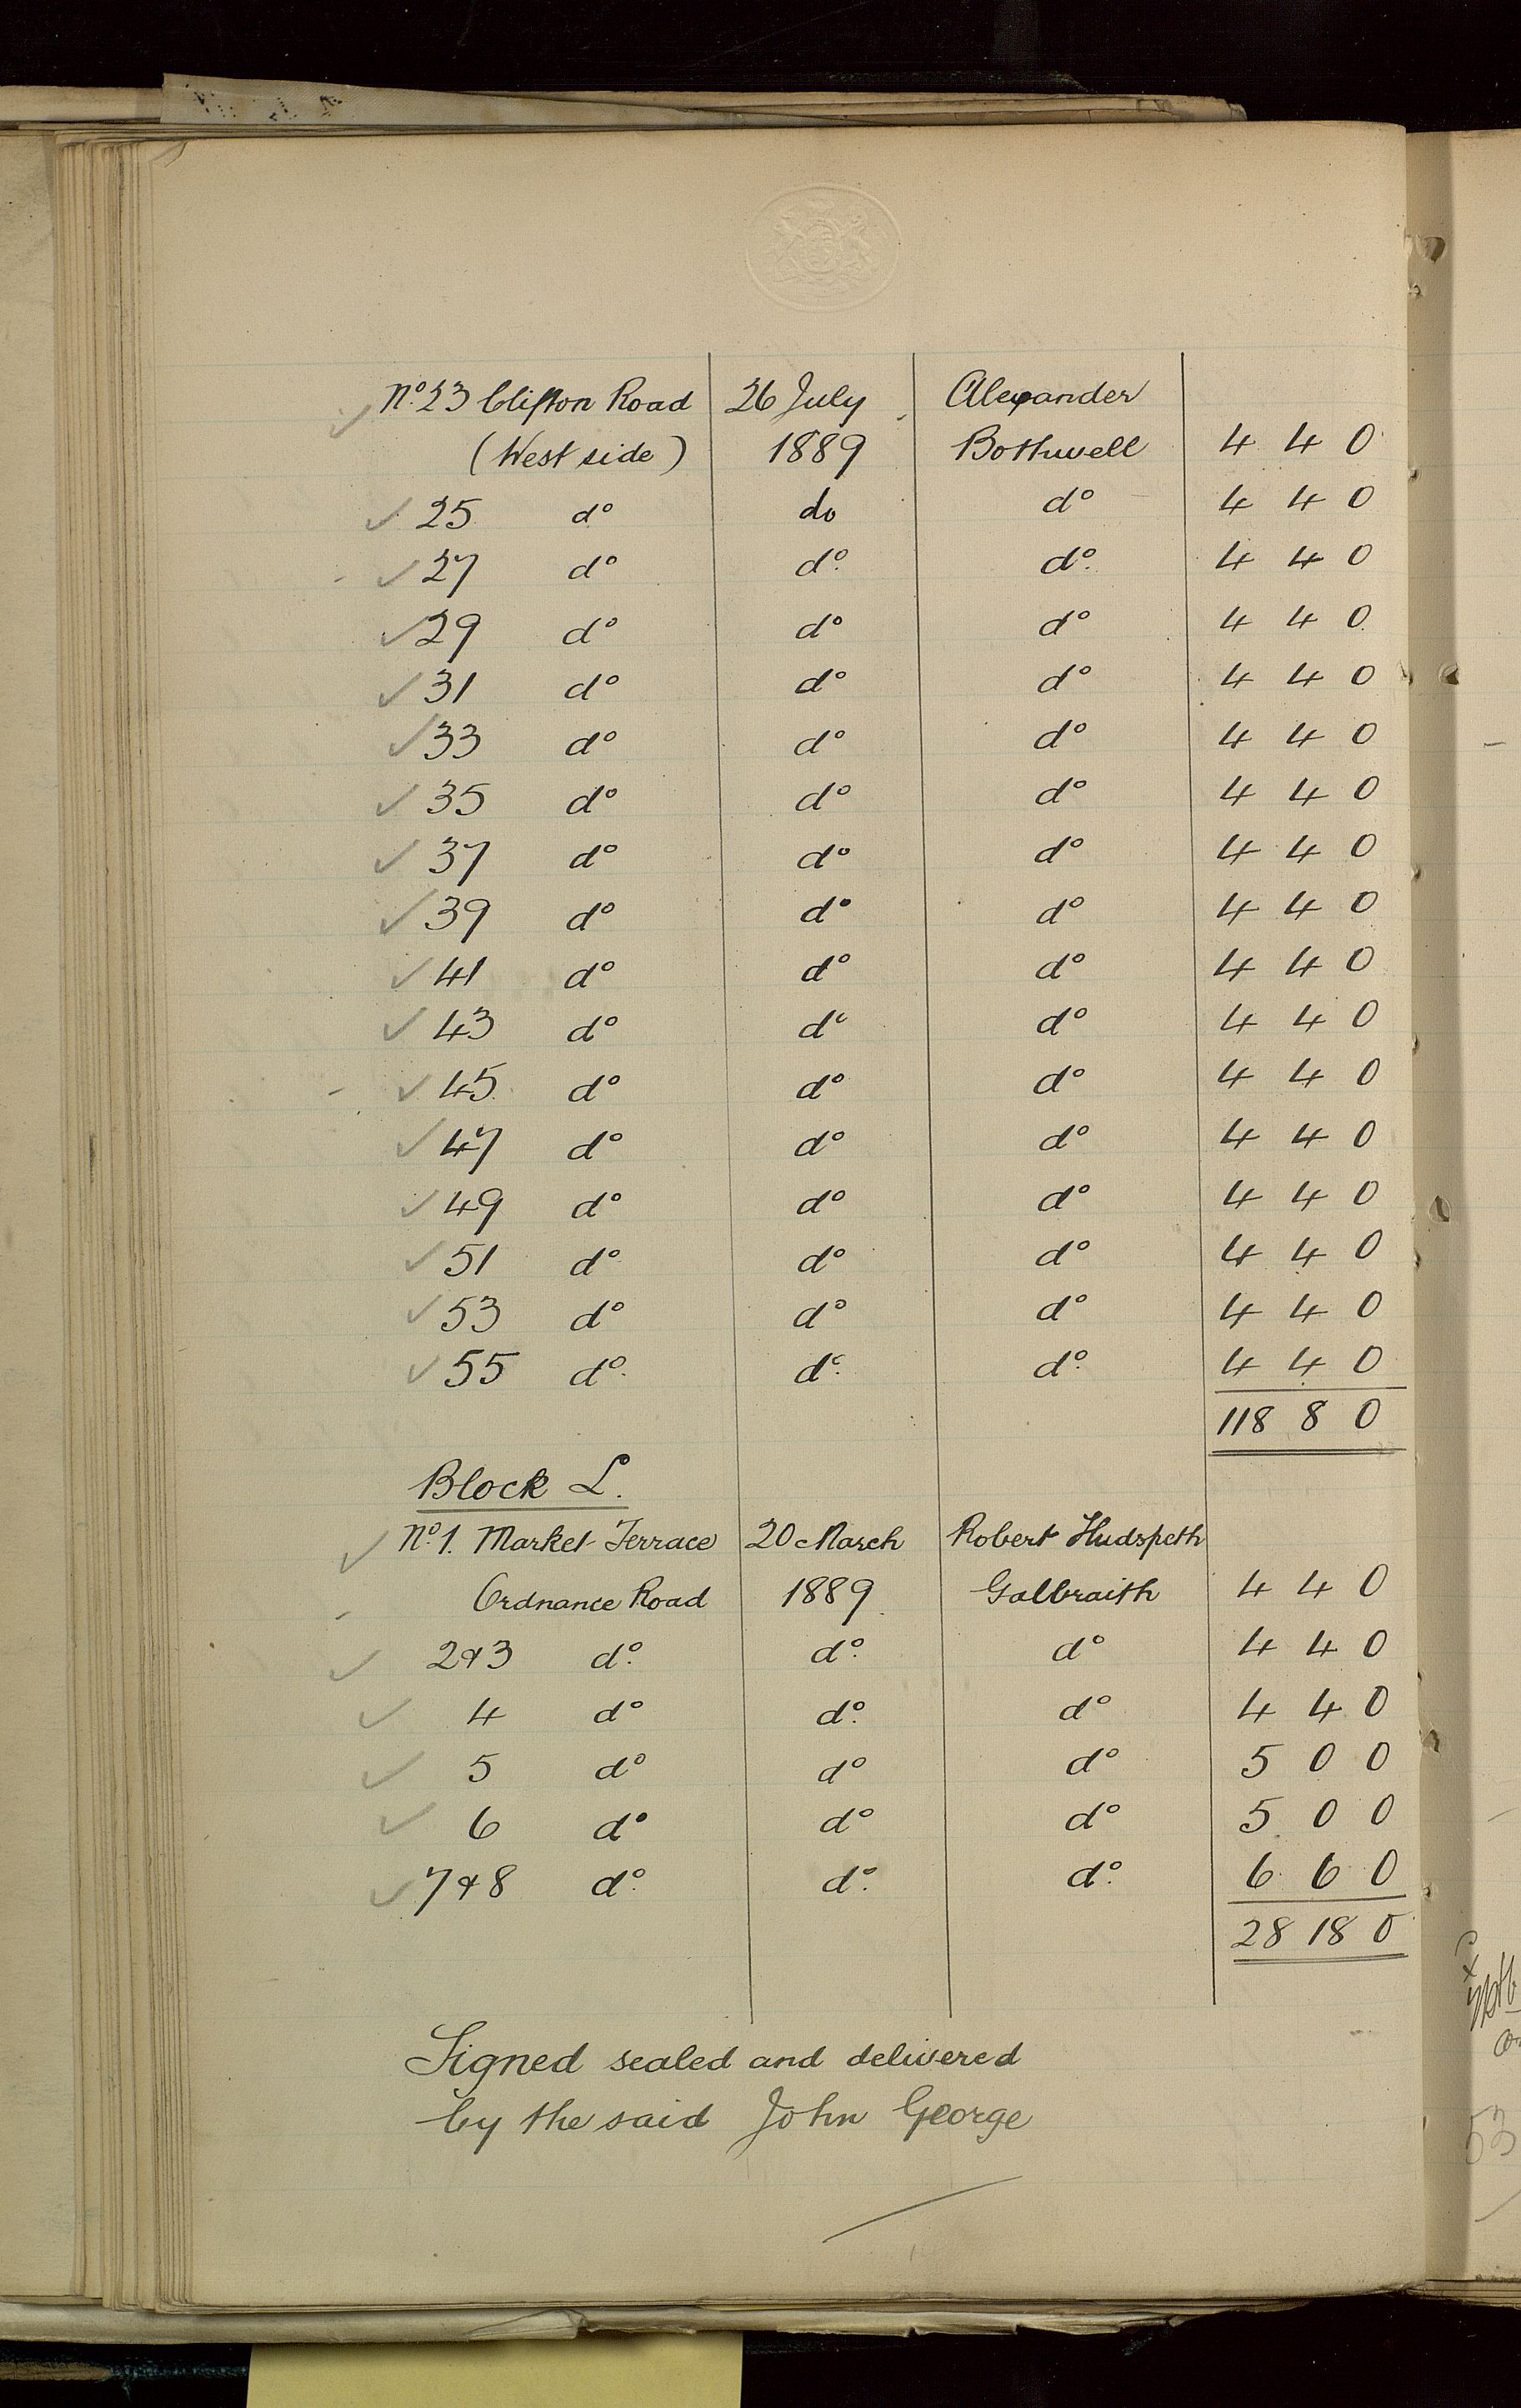 No. 23 Clifton Road 26 July Alexander
(West side) 1889 Bothwell 4 4 0
25 do do do 4 4 0
27 do do. do. 4 4 0
29 do do do 4 4 0
31 do do do 4 4 0
33 do do do 4 4 0
35 do do do 4 4 0
37 do do do 4 4 0
39 do do do 4 4 0
41 do do do 4 4 0
43 do do do 4 4 0
45 do do do 4 4 0
47 do do do 4 4 0
49 do do do 4 4 0
51 do do do 4 4 0
53 do do do 4 4 0
55 do. do. do. 4 4 0
118 8 0
Block L.
No. 1. Market Terrace 20 March Robert Hudspeth
Ordnance Road 1889 Galbraith 4 4 0
2 & 3 do. do. do 4 4 0
4 do do. do 4 4 0
5 do do do 5 0 0
6 do do do 5 0 0
7 & 8 do. do. do. 6 6 0
28 18 0
Signed sealed and delivered
by the said John George
53